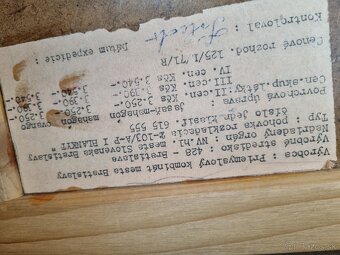 Výrobca : Priemyslový kombinát mesta Bratislavy
Výrobné stredisko : 428 - Bratislava
Nadriadený orgán : NV. hl. mesta Slovenska Bratislavy
Typ : pohovka rozkladacia Z-103/A-P I BLANKYT "
číslo jedn. klasif. 615 555
Povrchová úprava : jaseň-mahagon mahagon orange
Cen.skup.látky: II.cen. Kčs 3.250.- 3.250.- 3.250.-
III.cen. Kčs 3.390.- 3.390.- 3.390.-
IV. cen. Kčs 3.540.- 3.540.- 3.540.-
Cenové rozhod. 125/I/71/R
Kontroloval :
Dátum expedície :